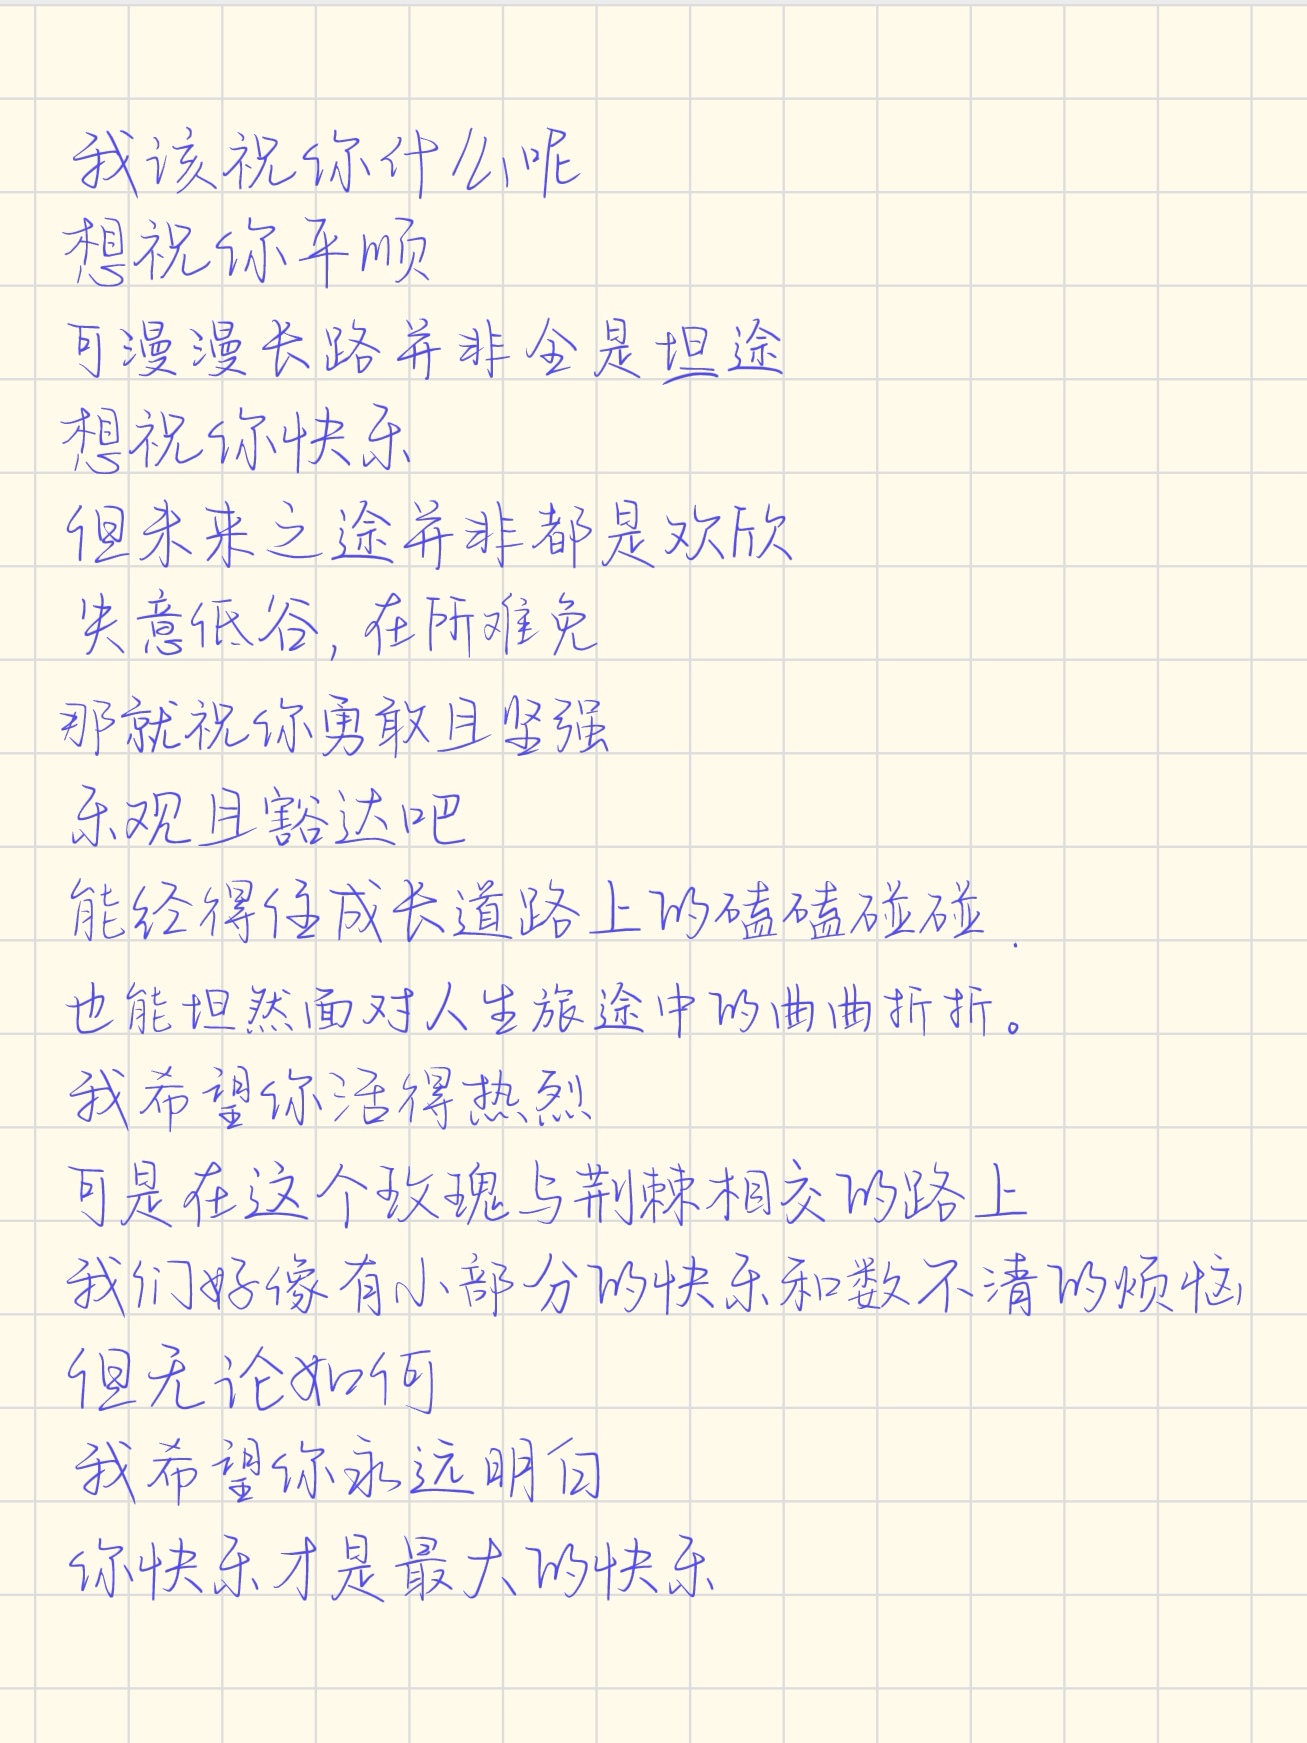 我该祝你什么呢
想祝你平顺
可漫漫长路并非全是坦途
想祝你快乐
但未来之途并非都是欢欣
失意低谷,在所难免
那就祝你勇敢且坚强
乐观且豁达吧
能经得住成长道路上的磕磕碰碰.
也能坦然面对人生旅途中的曲曲折折。
我希望你活得热烈
可是在这个玫瑰与荆棘相交的路上
我们好像有小部分的快乐和数不清的烦恼
但无论如何
我希望你永远明白
你快乐才是最大的快乐